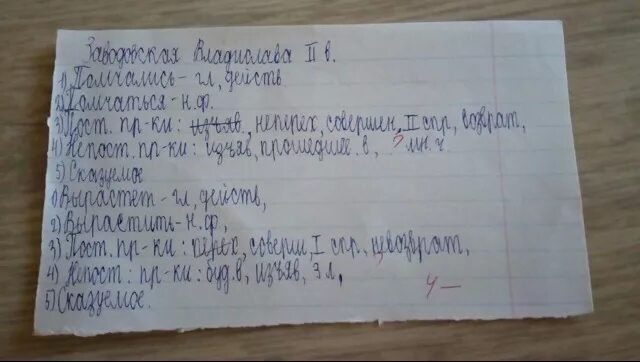 Заводовская Владислава II в.
1) Помчались - гл, действ
2) Помчаться - н.ф.
3) Пост. пр-ки: изъяв. неперех, совершен, II спр, возврат,
4) Непост. пр-ки: изъяв, прошедшее. в, мн. ч.
5) Сказуемое
1) Вырастет - гл, действ,
2) Вырастить - н.ф,
3) Пост. пр-ки: перех, соверш, I спр, невозврат,
4) Непост: пр-ки: буд. в, изъяв, 3 л,
5) Сказуемое.
4 —